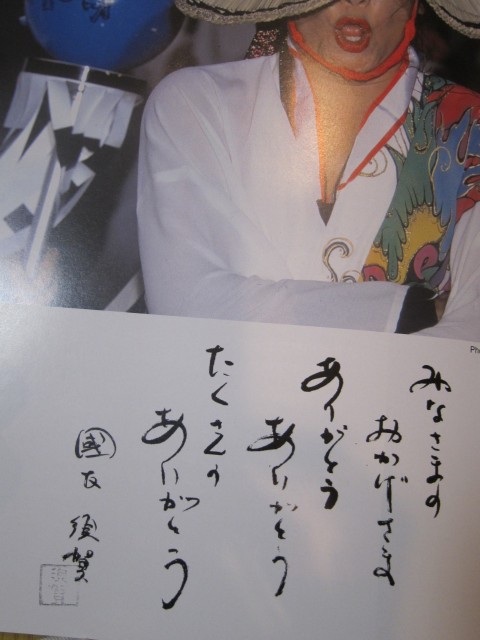 みなさまの
おかげさま
ありがとう
ありがとう
たくさんの
ありがとう
國友 須賀
Ph